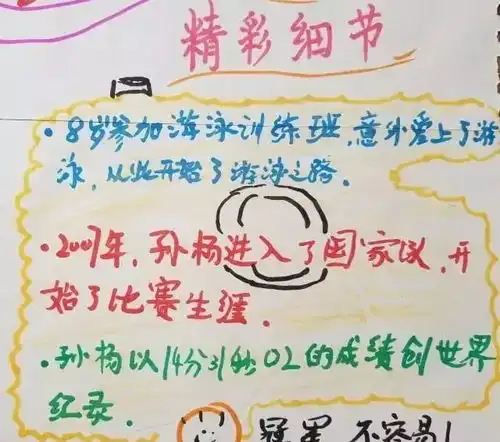 精彩细节
·8岁参加游泳训练班,意外爱上了游
泳,从此开始了游泳之路.
·2007年,孙杨进入了国家队,开
始了比赛生涯.
·孙杨以14分31秒02的成绩创世界
纪录.
冠军 不容易!